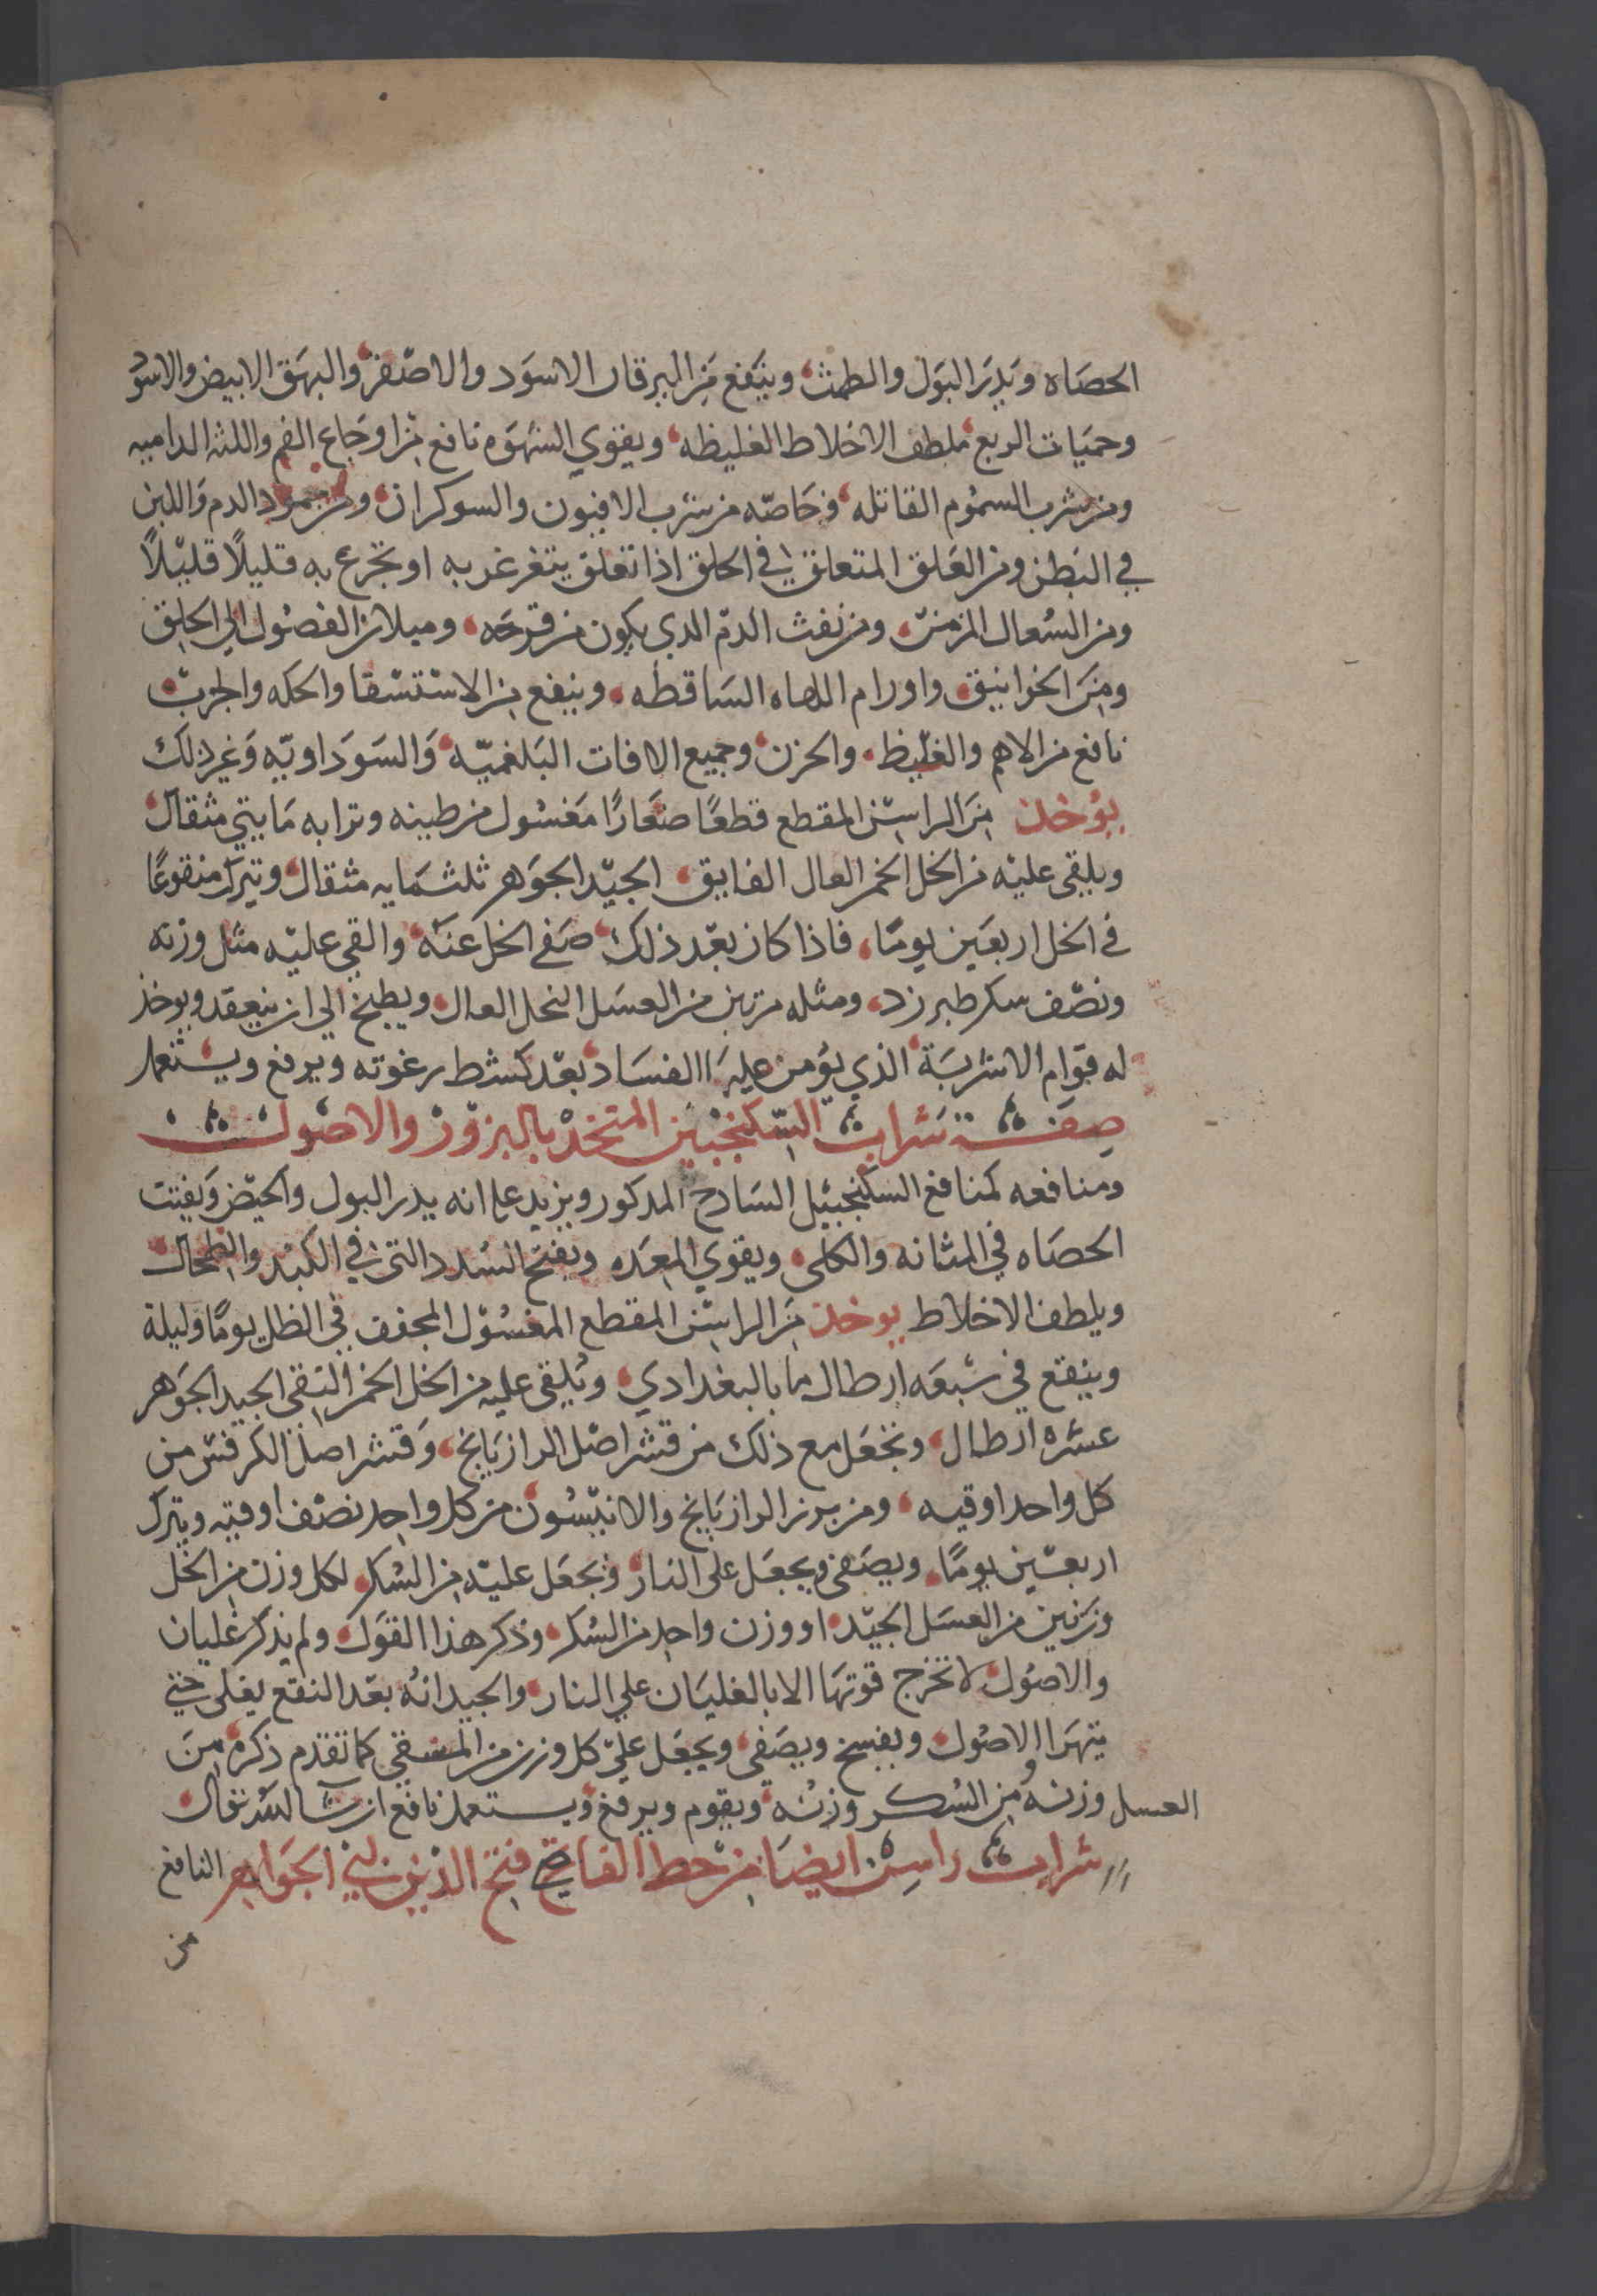 الحصاه ويدر البول والطمث وينفع من اليرقان الاسود والاصفر والبهق الابيض والاسود
وحميات الربع ملطف الاخلاط الغليظه ويقوي الشهوه نافع من اوجاع الفم واللثه الداميه
ومن شرب السموم القاتله وخاصه من شرب الافيون والسوكران ومن جمود الدم واللبن
في البطن ومن العلق المتعلق في الحلق اذا تعلق يتغرغر به او تجرع به قليلًا قليلًا
ومن السعال المزمن ومن نفث الدم الدي يكون من قرحه وميلان الفضول الي الحلق
ومن الخوانيق واورام اللهاه الساقطه وينفع من الاستسقا والحكه والجرب
نافع من الاهم والغليظ والحزن وجميع الافات البلغميه والسوداويه وغير ذلك
يؤخذ من الراسن المقطع قطعًا صغارًا مغسول من طينه وترابه مايتي مثقال
ويلقي عليه من الخل الخمر العال الفايق الجيد الجوهر ثلثمايه مثقال ويترك منقوعًا
في الخل اربعين يومًا فاذا كان بعد ذلك صفي الخل عنه والقي عليه مثل وزنه
ونصف سكر طبرزد ومثله مرتين من العسل النحل العال ويطبخ الي ان ينعقد ويوخذ
له قوام الاشربة الذي يؤمن عليها الفساد بعد كشط رغوته ويرفع ويستعمل
صفة شراب السكنجبين المتخذ بالبزور والاصول
ومنافعه كمنافع السكنجبيل السادج المدكور ويزيد علي انه يدر البول والحيض ويفتت
الحصاه في المثانه والكلى ويقوي المعده ويفتح السدد التي في الكبد والطحال
ويلطف الاخلاط يوخذ من الراسن المقطع المغسول المجفف في الظل يومًا وليلة
وينقع في سبعه ارطال ما بالبغدادي ويلقي عليه من الخل الخمر النقي الجيد الجوهر
عشره ارطال وتجعل مع ذلك من قشر اصل الرازيانج وقشر اصل الكرفس من
كل واحد اوقيه ومن بزر الرازيانج والانيسون من كل واحد نصف اوقيه ويترك
اربعين يومًا ويصفى ويجعل على النار ويجعل عليه من السكر لكل وزن من الخل
وزنين من العسل الجيد او وزن واحد من السكر وذكر هذا القول ولم يذكر غليان
والاصول لا تخرج قوتها الا بالغليان علي النار والجيد انه بعد النقع يغلى حتي
يتهرا الاصول ويفسخ ويصفى ويجعل علي كل وزن من المسقي كما تقدم ذكره من
العسل وزنه ومن السكر وزنه ويقوم ويرفع ويستعمل نافع ان شا الله تعالى
شراب راسن ايضا من خط الفاتح فتح الدين بن الجواهر النافع
من